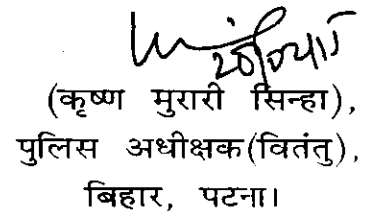 (कृष्ण मुरारी सिन्हा),
पुलिस अधीक्षक(वितंतु),
बिहार, पटना।